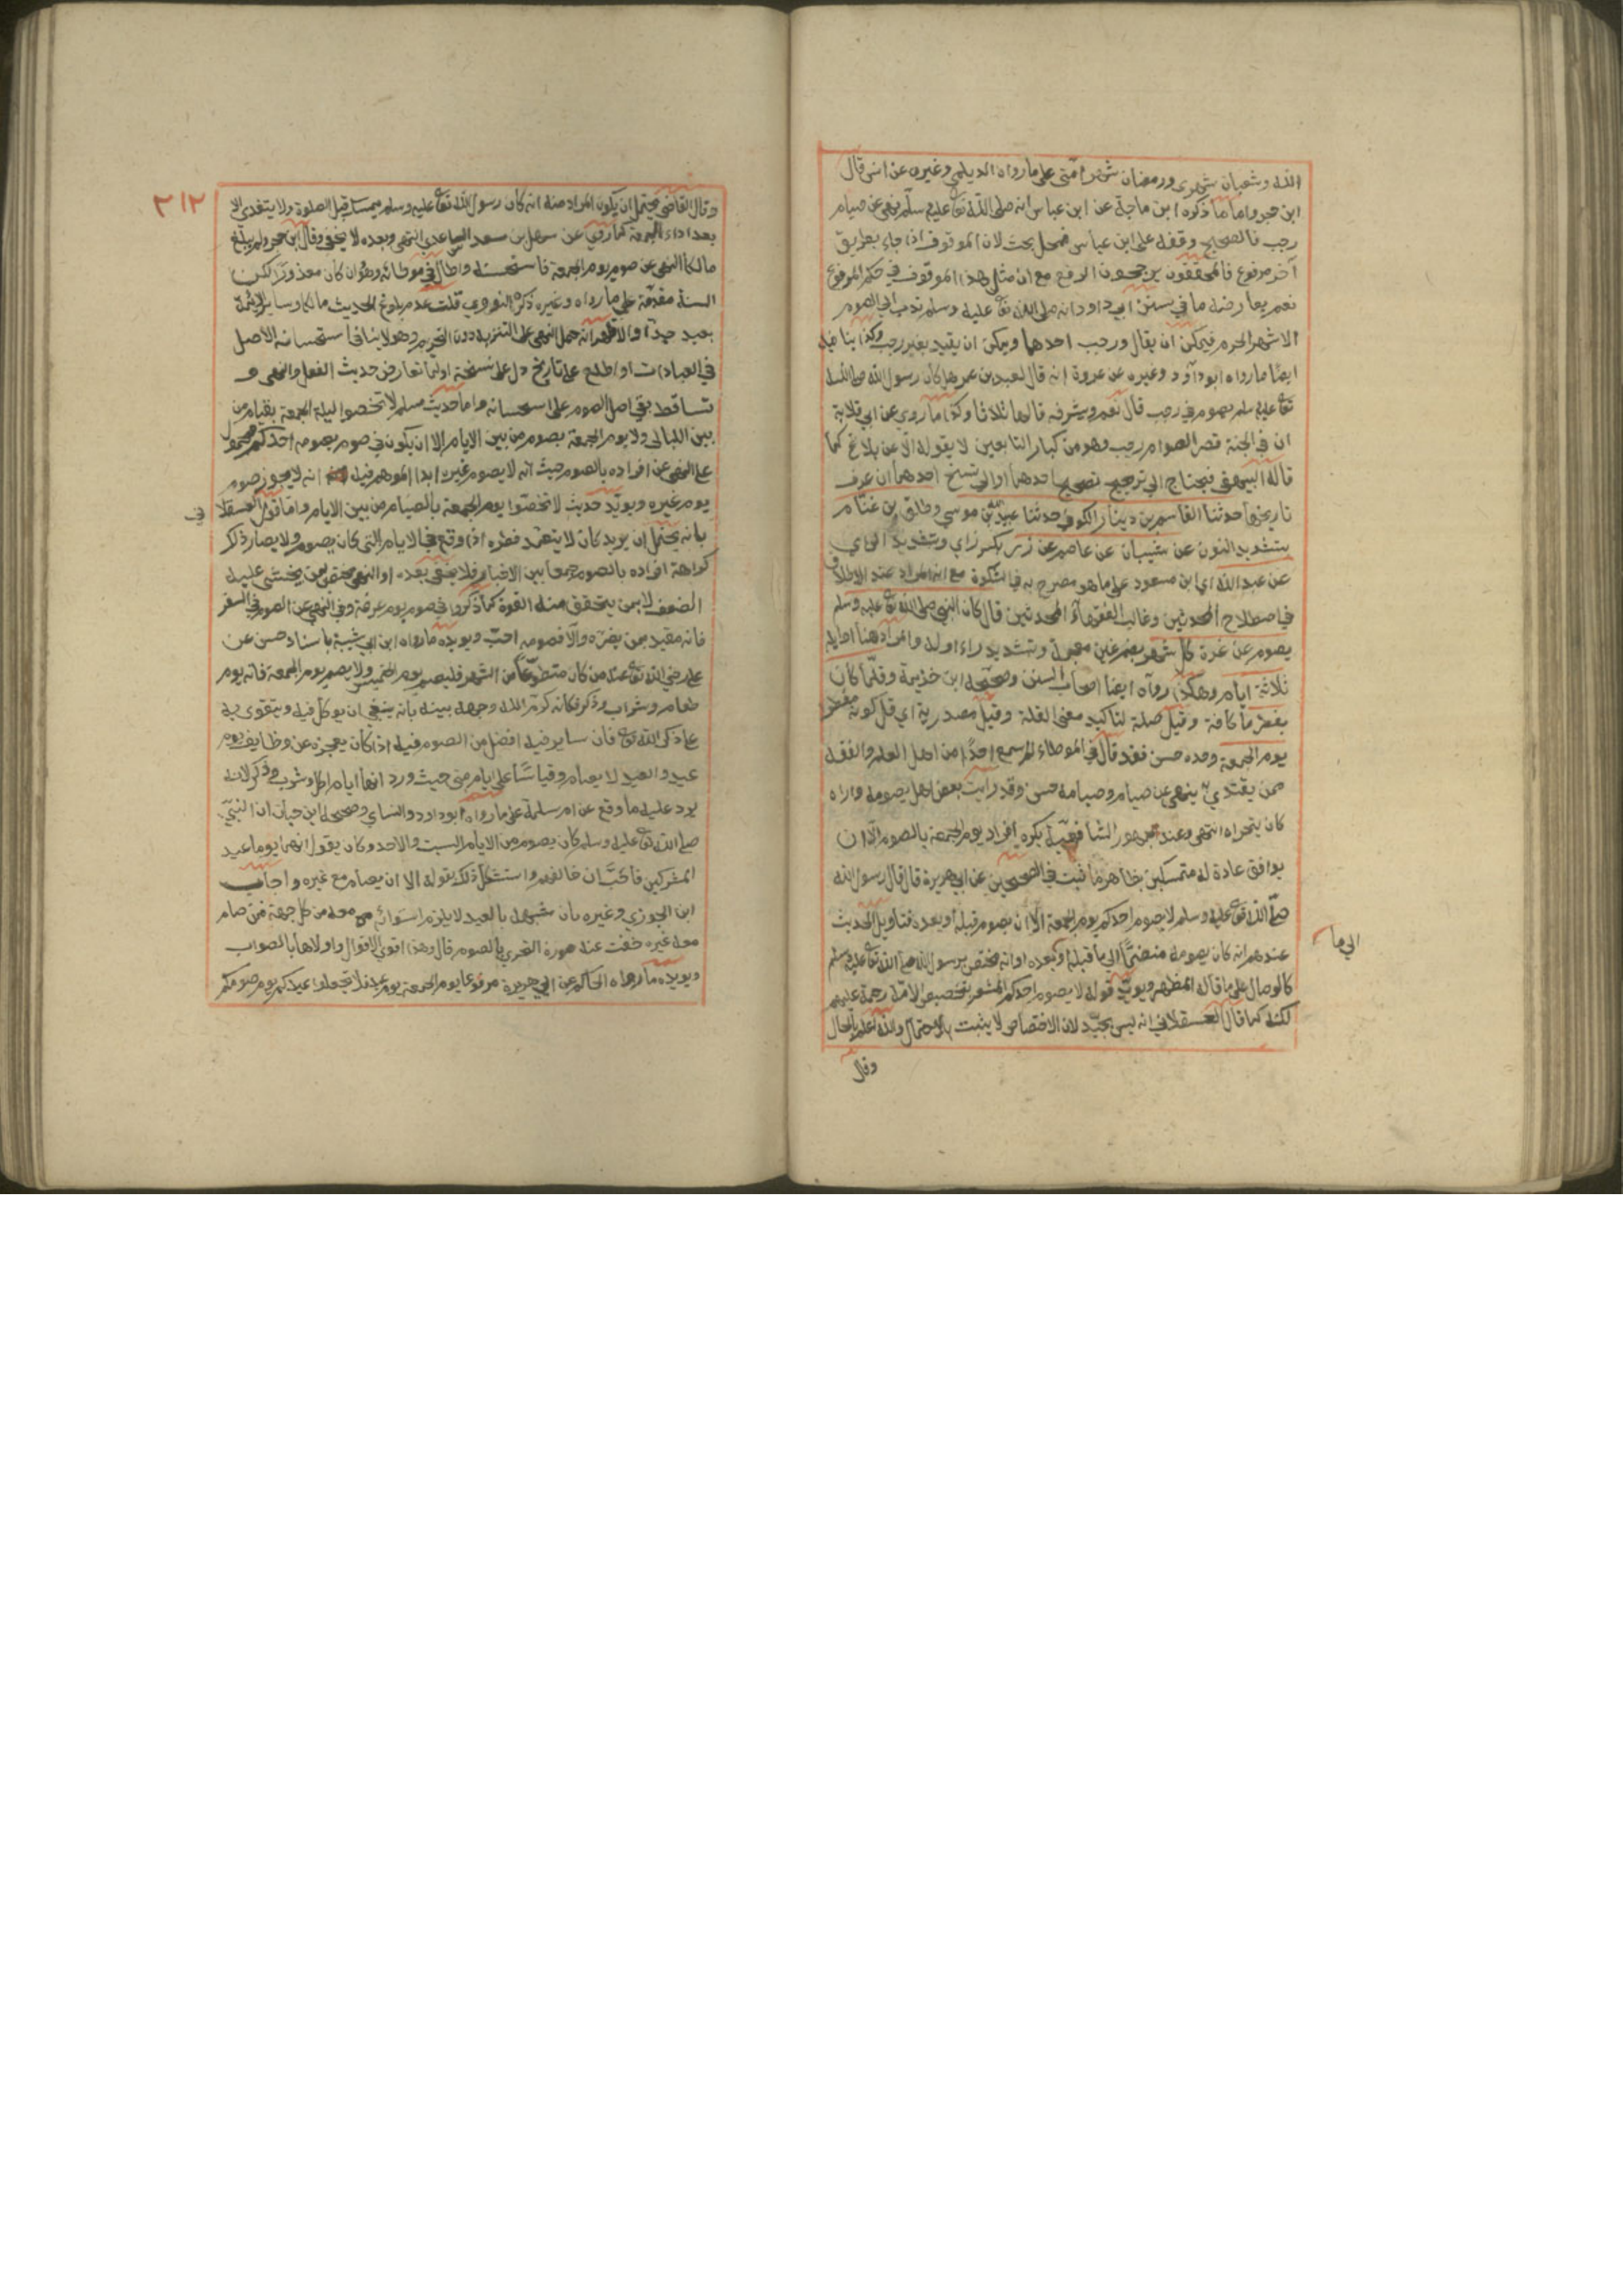 الله وشعبان شهرى ورمضان شهر امتى على ما رواه الديلمي وغيره عن انس قال
ابن حجر واما ما ذكره ابن ماجة عن ابن عباس انه صلى الله تعا عليه وسلم نهى عن صيام
رجب فالصحيح وقفه على ابن عباس فمحل بحث لان الموقوف اذا جاء بطريق
آخر مرفوع فالمحققون يرجحون الرفع مع ان مثل هذا الموقوف في حكم المرفوع
نعم يعارضه ما في سنن ابي داود انه صلى الله تعا عليه وسلم ندب الى الصوم
الاشهر الحرم فيمكن ان يقال ورجب احدها ويمكن ان يقيد بغير رجب وكذا ينافيه
ايضا ما رواه ابو داود وغيره عن عروة انه قال لعبد بن عمر هل كان رسول الله صلى الله
تعا عليه وسلم يصوم في رجب قال نعم ويشرفه قالها ثلاثا وكذا ما روي عن ابي قلابة
ان في الجنة قصر الصوام رجب وهو من كبار التابعين لا يقوله الا عن بلاغ كما
قاله البيهقي فيحتاج الى ترجيح تصحيح احدهما او الى نسخ احدهما ان عرف
تاريخها حدثنا القاسم بن دينار الكوفي حدثنا عبيد الله بن موسى وطلق بن غنام
بتشديد النون عن شيبان عن عاصم عن زر بكسر زاي وتشديد الراي
عن عبد الله اي ابن مسعود على ما هو مصرح به في المشكوة مع انه المراد عند الاطلاق
في اصطلاح المحدثين وغالب الفقهاء المحدثين قال كان النبي صلى الله تعا عليه وسلم
يصوم عن غرة كل شهر بضم غين معجمة وتشديد راء اوله والمراد هنا اوايله
ثلاثة ايام وهكذا رواه ايضا اصحاب السنن وصححه ابن خزيمة وقلما كان
يفطر ما كافة وقيل صلة لتاكيد معنى القلة وقيل مصدرية اي قل كونه مفطرا
يوم الجمعة وحده حسن فقد قال في الموطاء لم اسمع احدا من اهل العلم والفقه
ممن يقتدي به ينهى عن صيام وصيامه حسن وقد رايت بعض اهل يصومه واراه
كان يتحراه انتهى وعند جمهور الشافعية يكره افراد يوم الجمعة بالصوم الا ان
يوافق عادة له متمسكين بظاهر ما ثبت في الصحيحين عن ابي هريرة قال قال رسول الله
صلى الله تعا عليه وسلم لا يصوم احدكم يوم الجمعة الا ان يصوم قبله او بعده فتاويل الحديث
عندهم انه كان يصومه منضما الى ما قبله او بعده او انه مختص برسول الله صلى الله تعا عليه وسلم
كالوصال على ما قاله المظهر ويويد قوله لا يصوم احدكم المشعر بتخصيص الامة رحمة عليهم
لكنه كما قال العسقلاني انه ليس بجيد لان الاختصاص لا يثبت بالاحتمال والله اعلم بالحال
الى ما
وقال
٣١٢
وقال القاضي يحتمل ان يكون المراد منه انه كان رسول الله تعا عليه وسلم يمسك قبل الصلوة ولا يتغدى الا
بعد اداء الجمعة كما روي عن سهل بن سعد الساعدي انتهى وبعده لا يخفى وقال ابن حجر ولم يبلغ
مالكا النهي عن صوم يوم الجمعة فاستحسنه واطال في موطائه وهو ان كان معذورا لكن
السنة مقدمة على ما رواه وغيره ذكره النووي قلت عدم بلوغ الحديث مالكا وساير الائمة
بعيد جدا والاظهر انه حمل النهي على التنزيه دون التحريم وهو لا ينافي استحسانه الاصل
في العبادات او اطلع على تاريخ دل على نسخه او لما تعارض حديث الفعل والنهي و
تساقط بقي اصل الصوم على استحسانه واما حديث مسلم لا تخصوا ليلة الجمعة بقيام من
بين الليالي ولا يوم الجمعة بصوم من بين الايام الا ان يكون في صوم يصومه احدكم فمحمول
على النهي عن افراده بالصوم حيث انه لا يصوم غيره ابدا الموهم فيه انه لا يجوز صوم
يوم غيره ويويد حديث لا تخصوا يوم الجمعة بالصيام من بين الايام واما قول العسقلا
ني
بانه يحتمل ان يريد كان لا يتعمد فطره اذا وقع في الايام التي كان يصوم ولا يصار ذكر
كراهة افراده بالصوم جمعا بين الاخبار فلا يخفى بعده او النهي مختص بمن يخشى عليه
الضعف لا بمن يتحقق منه القوة كما ذكروا في صوم يوم عرفة وفي النهي عن الصوم في السفر
فانه مقيد بمن يضره والا فصومه احب ويويده ما رواه ابن ابي شيبة باسناد حسن عن
علي رضي الله تعا عنه من كان متطوعا من الشهر فليصم يوم الخميس ولا يصم يوم الجمعة فانه يوم
طعام وشراب وذكر فكانه كرم الله وجهه بينه بانه ينبغي ان يوكل فيه ويتقوى به
على ذكر الله تعا فان ساير فيه افضل من الصوم فيه اذا كان يعجزه عن وظايف يوم
عيد والعيد لا يصام وقياسا على ايام منى حيث ورد انها ايام اكل وشرب وذكر لانه
يرد عليه ما وقع عن ام سلمة على ما رواه ابو داود والنساي وصححه ابن حبان ان النبي
صلى الله تعا عليه وسلم كان يصوم من الايام السبت والاحد وكان يقول انهما يوما عيد
المشركين فاحب ان خالفهم واستشكل ذلك بقوله الا ان يصام مع غيره واجاب
ابن الجوزي وغيره بان شبهه بالعيد لا يلزم استواؤه معه من كل جهة فمن صام
معه غيره خفت عنه صورة التحري بالصوم قال وهذا اقوى الاقوال واولاها بالصواب
ويويده ما رواه الحاكم عن ابي هريرة مرفوعا يوم الجمعة يوم عيد فلا تجعلوا عيدكم يوم صومكم